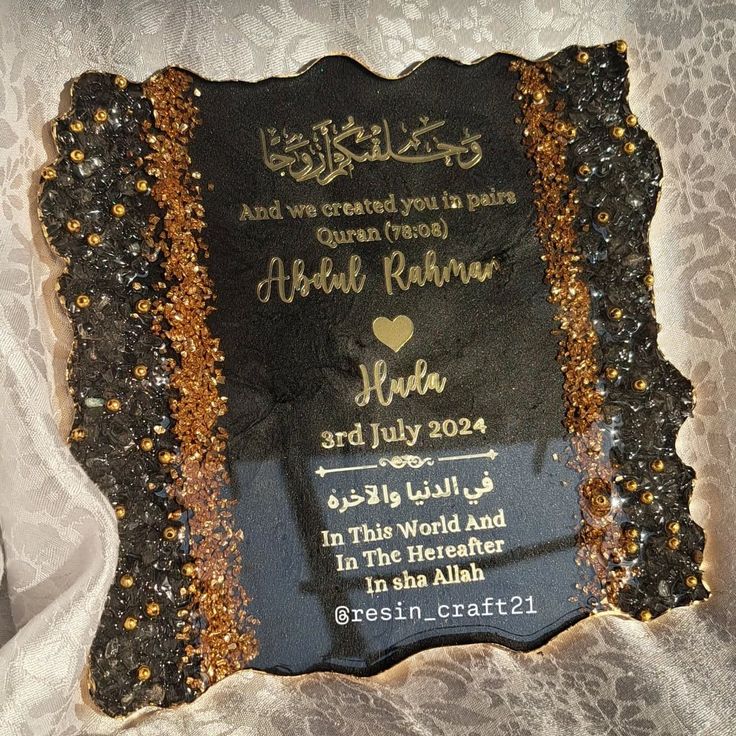 وَخَلَقْنَٰكُمْ أَزْوَٰجًا
And we created you in pairs
Quran (78:08)
Abdul Rahman
Huda
3rd July 2024
في الدنيا والآخره
In This World And
In The Hereafter
In sha Allah
@resin_craft21